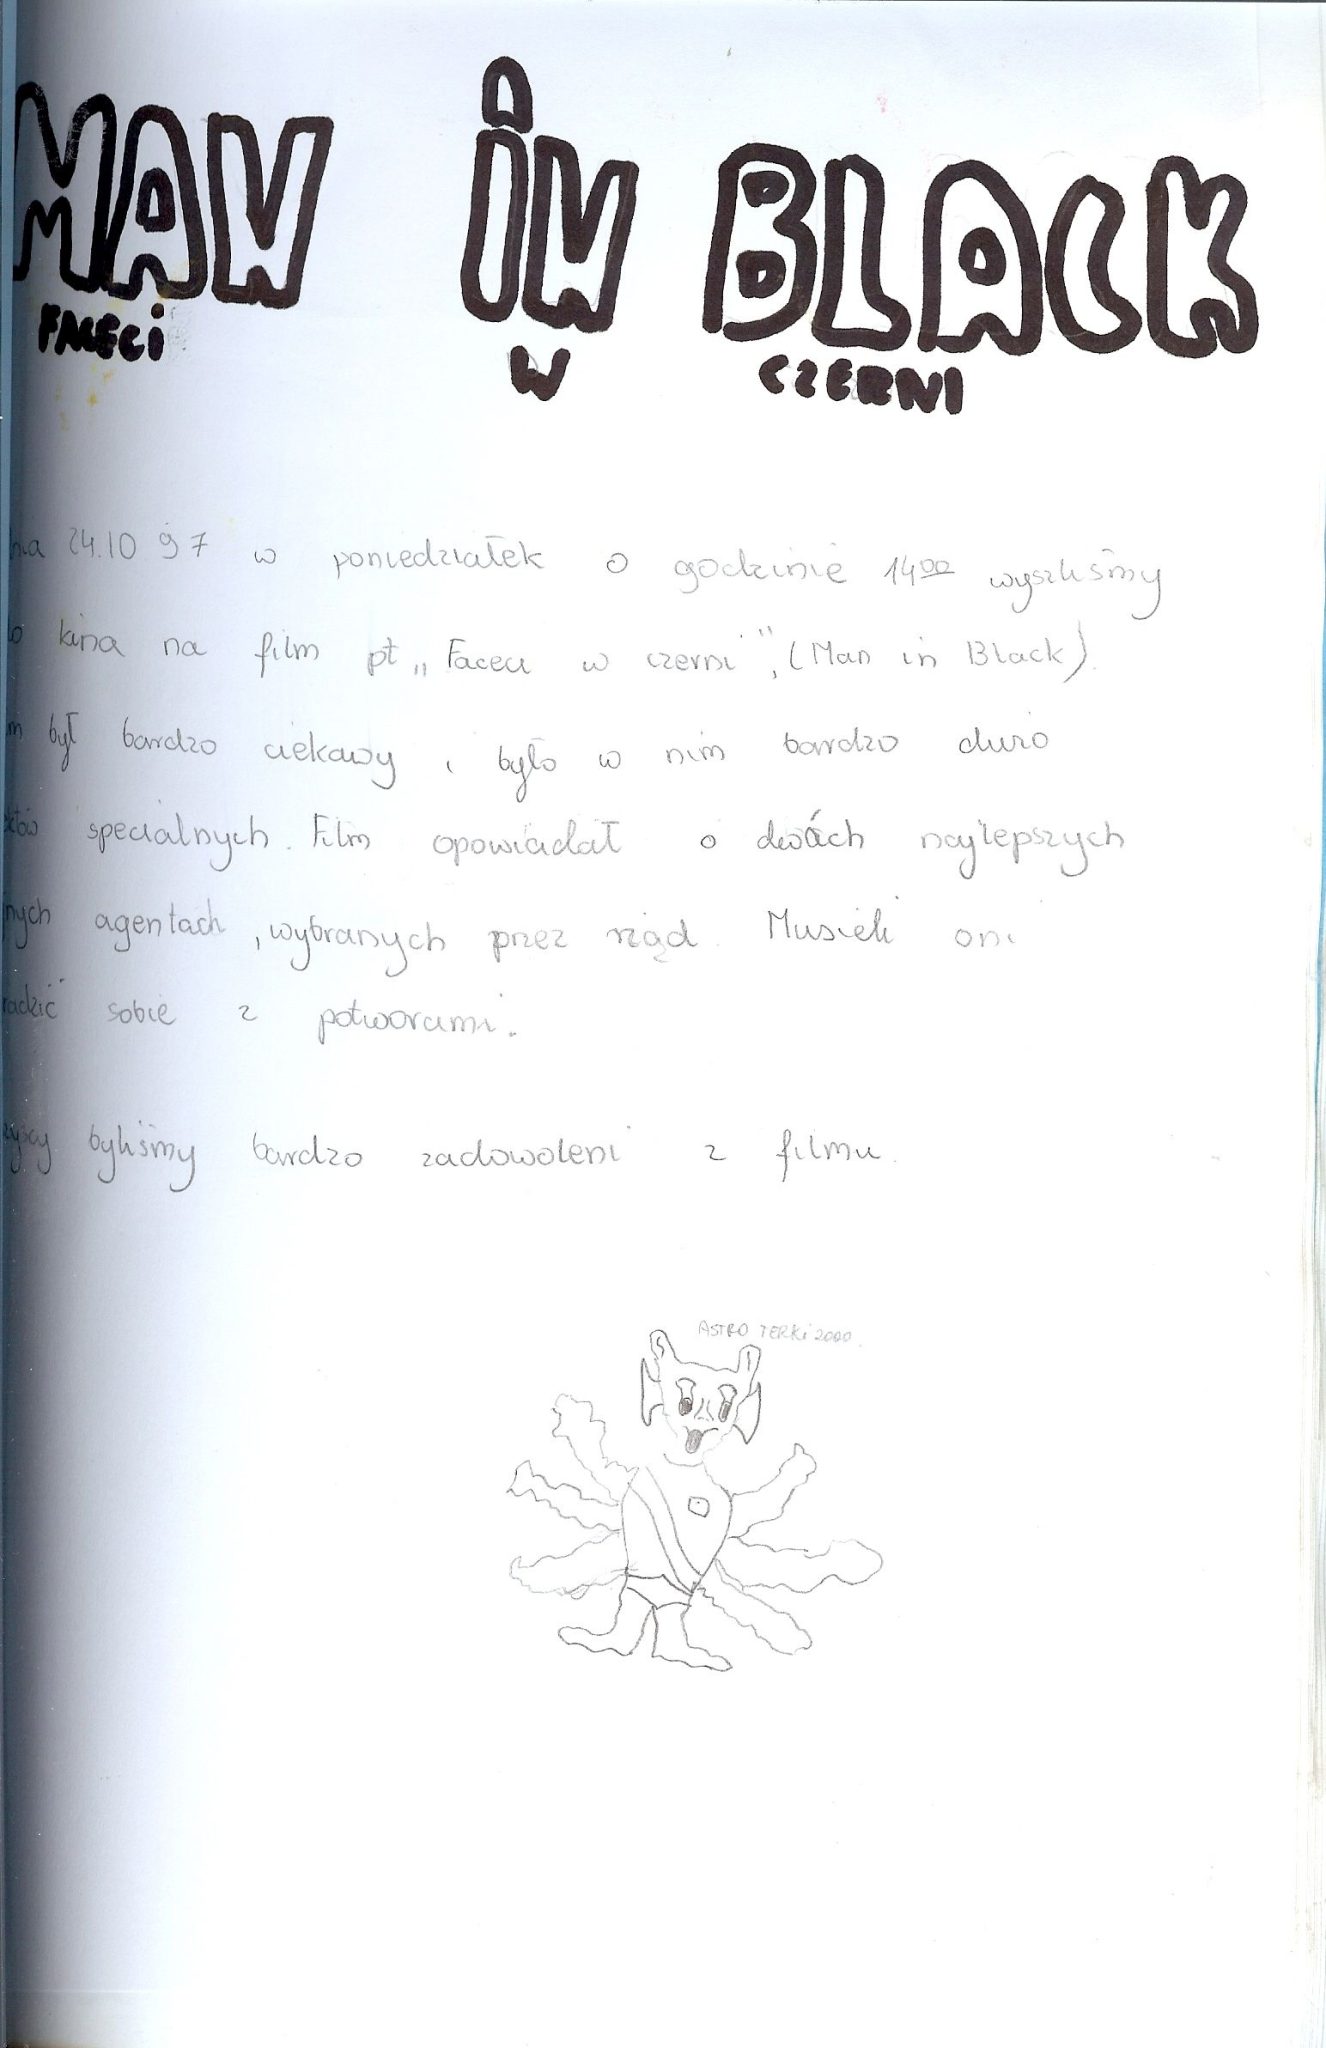 MAN iN BLACK
FACECi W CZERNI
24.10 97 w poniedziałek o godzinie 14⁰⁰ wyszliśmy
kina na film pt „Faceci w czerni”, (Man in Black).
był bardzo ciekawy i było w nim bardzo dużo
specialnych. Film opowiadał o dwóch najlepszych
agentach, wybranych przez rząd. Musieli oni
sobie z potworami.
byliśmy bardzo zadowoleni z filmu.
ASTRO TERKi 2000